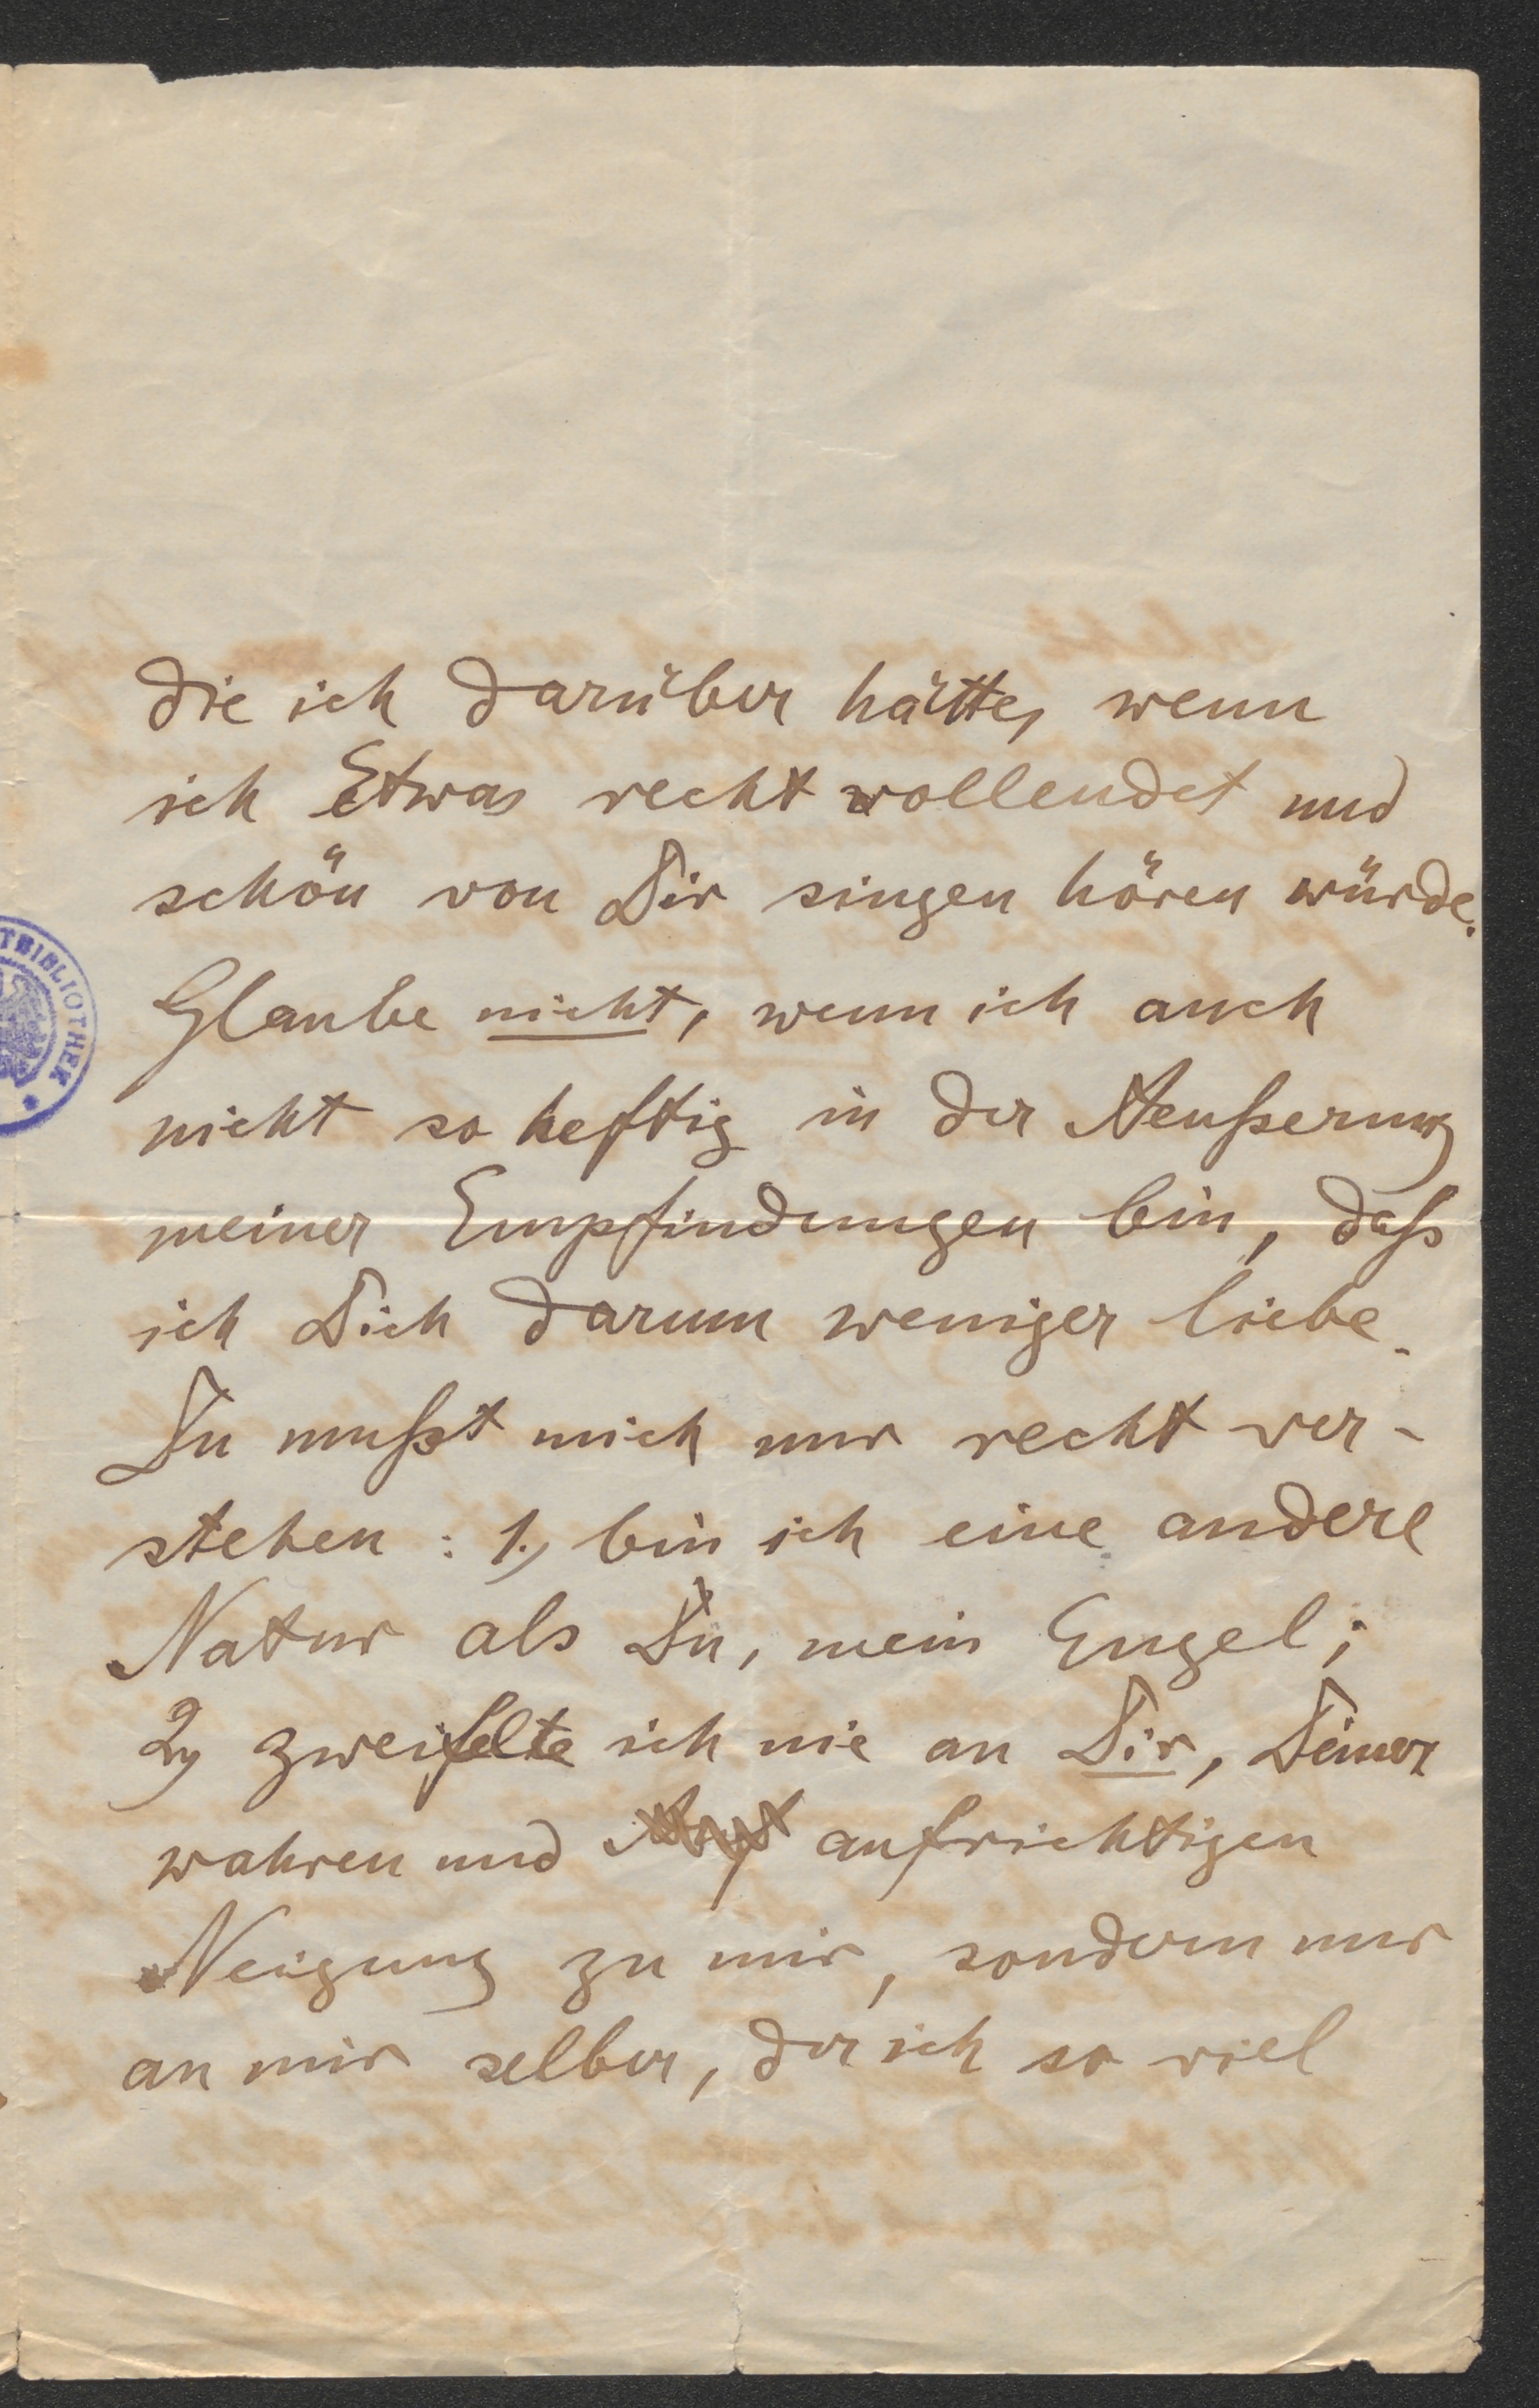 die ich darüber hätte, wenn
ich Etwas recht vollendet und
schön von Dir singen hören würde.
Glaube nicht, wenn ich auch
nicht so heftig in der Aeußerung
meiner Empfindungen bin, daß
ich Dich darum weniger liebe.
Du mußt mich nur recht ver-
stehen: 1., bin ich eine andere
Natur als Du, mein Engel;
2, zweifelte ich nie an Dir, Deiner
wahren und aufrichtigen
Neigung zu mir, sondern nur
an mir selber, der ich so viel
TSBIBLIOTHEK